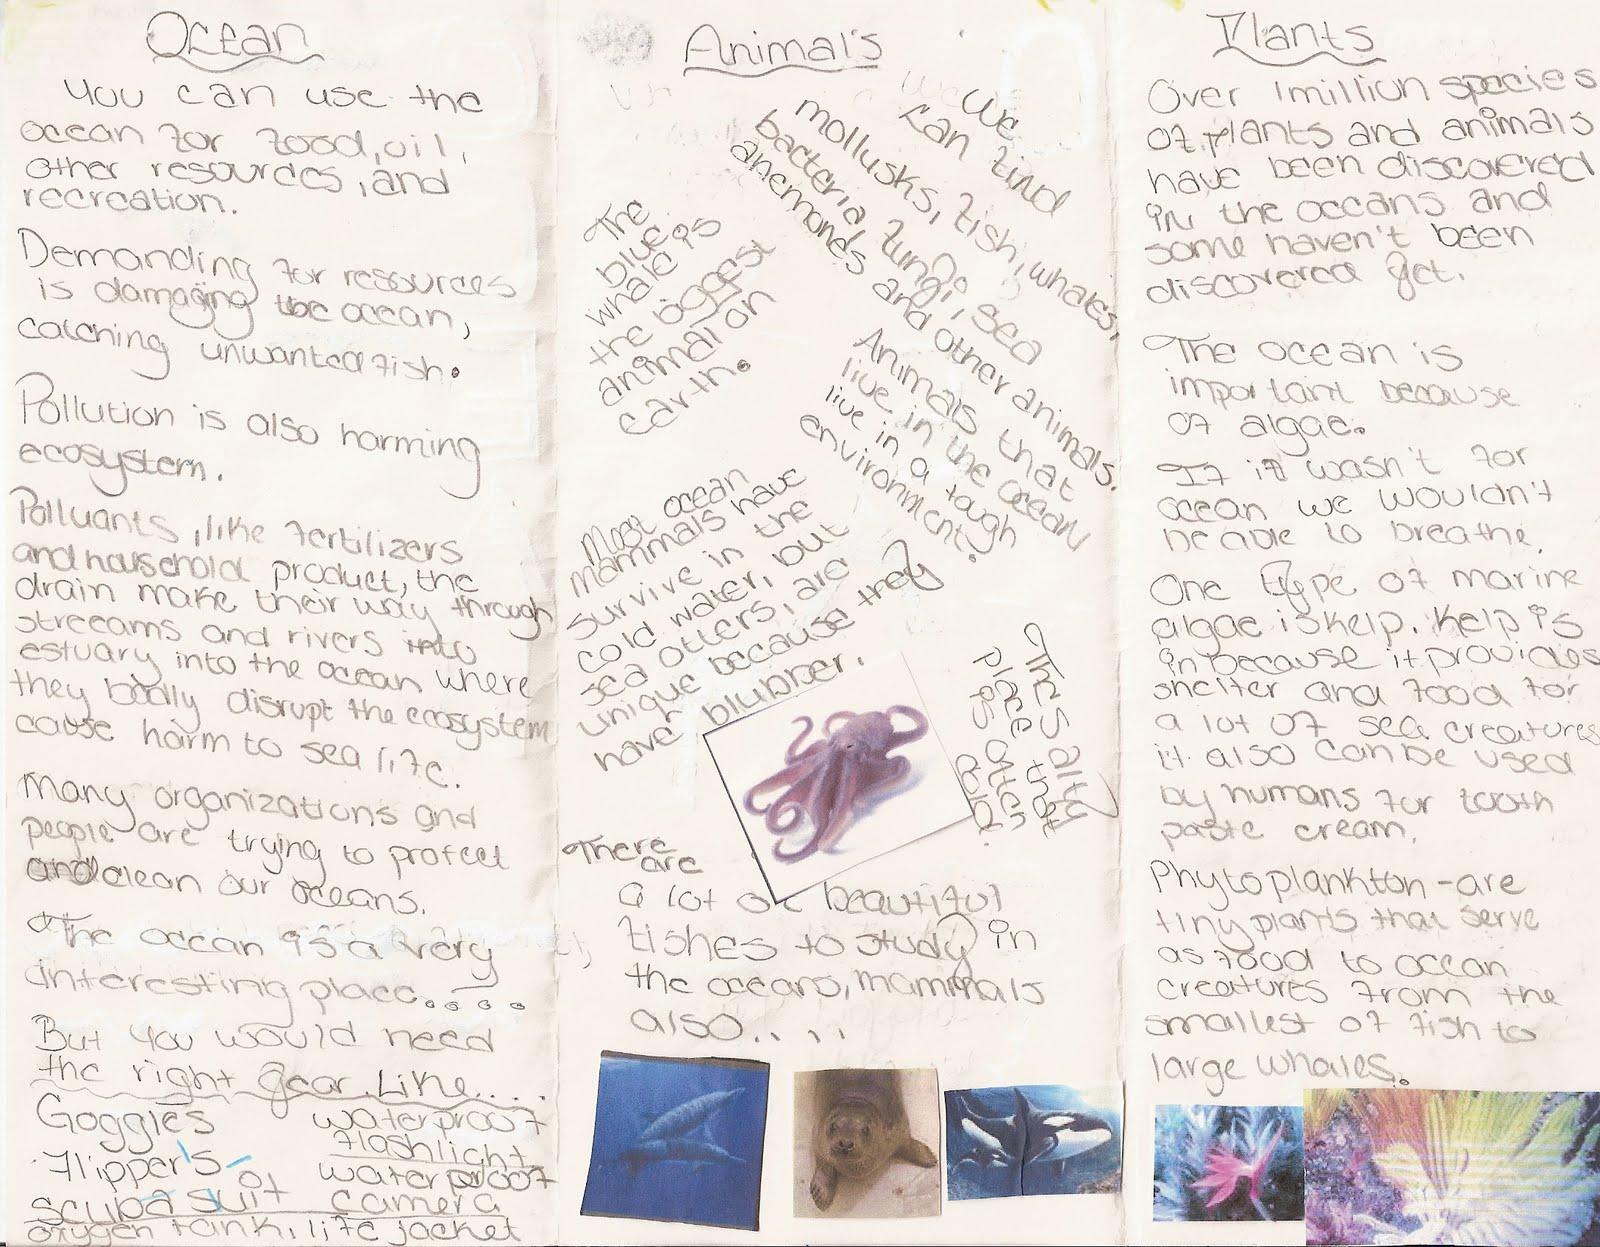 Ocean
You can use the
ocean for food, oil,
other resources, and
recreation.
Demanding for resources
is damaging the ocean,
catching unwanted fish.
Pollution is also harming
ecosystem.
Polluants, like fertilizers
and household product, the
drain make their way through
streeams and rivers into
estuary into the ocean where
they badly disrupt the ecosystem
cause harm to sea life.
Many organizations and
people are trying to protect
and clean our oceans.
The ocean is a very
interesting place....
But you would need
the right gear. Like....
Goggles
Flippers
scuba suit
oxygen tank, life jacket
waterproof
flashlight
waterproof
camera
Animal's
We
can find
mollusks, fish, whales,
bacteria, fungi, sea
anemonds and other animals.
The
blue
whale is
the biggest
animal on
earth.
Animals that
live in the ocean
live in a tough
environment.
Most ocean
mammals have
survive in the
cold water, but
sea otters, are
unique because they
have blubber.
place that
is often
cold.
There
are
a lot of beautiful
fishes to study in
the oceans, mammals
also....
Plants
Over 1 million species
of plants and animals
have been discovered
in the oceans and
some haven't been
discovered yet.
The ocean is
important because
of algae.
If it wasn't for
ocean we wouldn't
be able to breathe.
One type of marine
algae is kelp. Kelp is
in because it provides
shelter and food for
a lot of sea creatures
it also can be used
by humans for tooth
paste cream.
Phytoplankton-are
tiny plants that serve
as food to ocean
creatures from the
smallest of fish to
large whales.